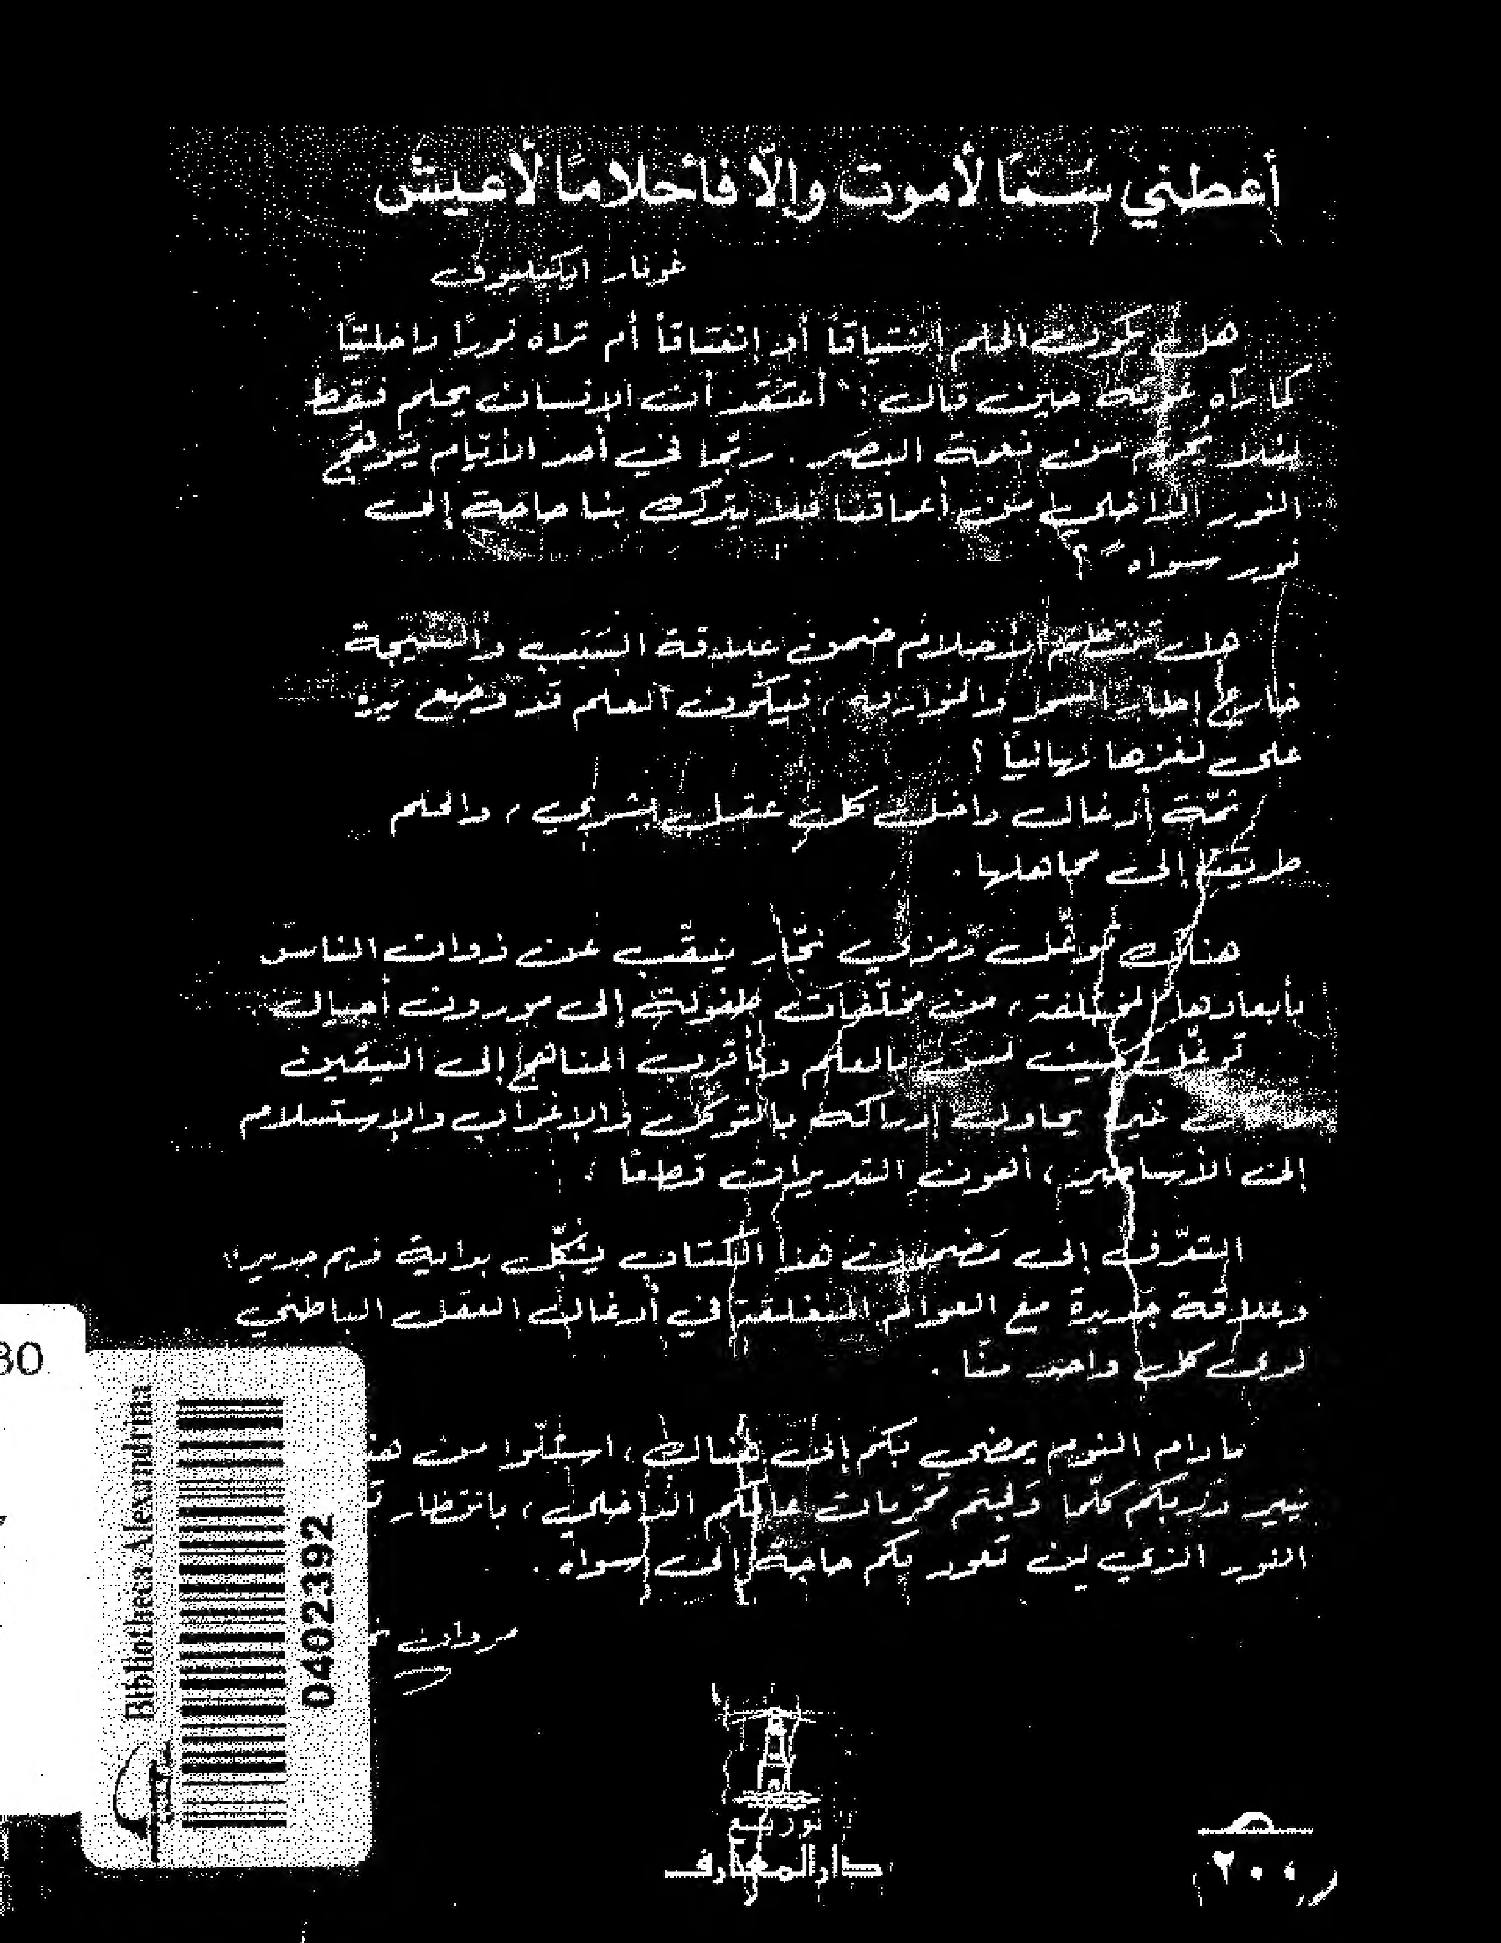 أعطني سمًّا لأموت وإلّا فأحلامًا لأعيش
غونار ايكيليوف
هل يكون الحلم اشتياقاً أو إنعتاقاً أم تراه نورًا داخليًّا
كما رآه غوته حين قال: "أعتقد أن الإنسان يحلم فقط
لئلا يُحرم من نعمة البصر. ربّما في أحد الأيّام يتوهّج
النور الداخلي من أعماقنا فلا يترك بنا حاجة إلى
نور سواه"؟
هل تنتظم الأحلام ضمن علاقة السَبَب والنتيجة
خارج إطار السحر والخوارق، فيكون العلم قد وضع يَده
على لغزها نهائيًا؟
ثمّة أدغال داخل كل عقل بشري، والحلم
طريقنا إلى مجاهلها.
هناك توغّل رمزي نجّار ينقّب عن ذوات الناس
بأبعادها المختلفة، من مخلّفات طفولية إلى موروث أجيال
توغّل حيث لُمس بالعلم وبأقرب المناهج إلى اليقين
غيره يحاول إدراكه بالتوكل والإغراب والإستسلام
إلى الأساطير، أهون التدبيرات قطعًا.
التعرّف إلى مَضمون هذا الكتاب يشكّل بداية نوم جديد
وعلاقة جديدة مع العوالم المغلقة في أدغال العقل الباطني
لدى كل واحد منّا.
ما دام النوم يمضي بكم إلى هناك، استلّوا من
ينير دربكم كلّما ولجتم تحرّيات عالمكم الداخلي، بانتظار
النور الذي لن تعود بكم حاجة إلى سواه.
مروان
توزيع
دار المعارف
٢٠٠
Bibliotheca Alexandrina
0402392
30